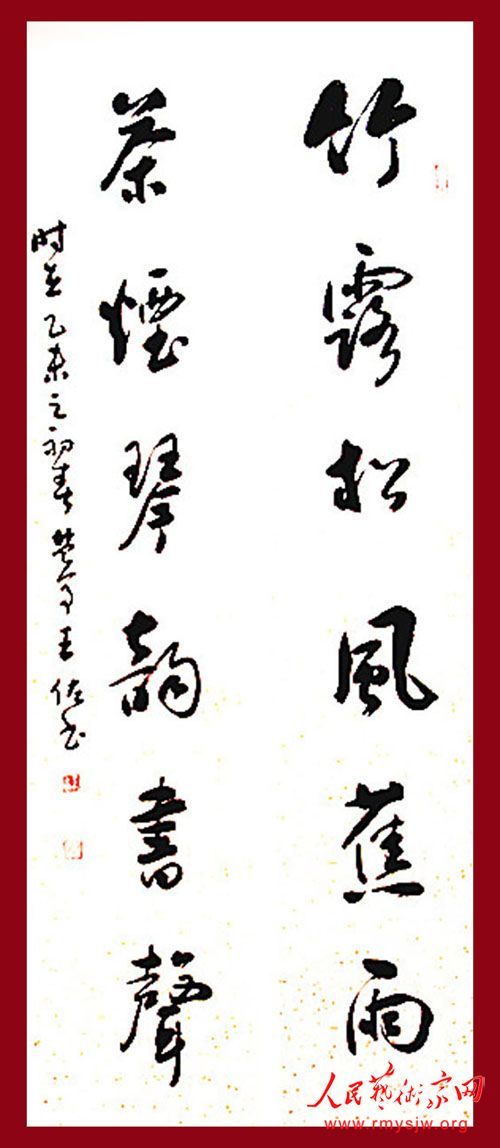 竹露松風蕉雨
茶煙琴韻書聲
时在乙未之初春楚了王佐书
人民藝術家网
www.rmysjw.org